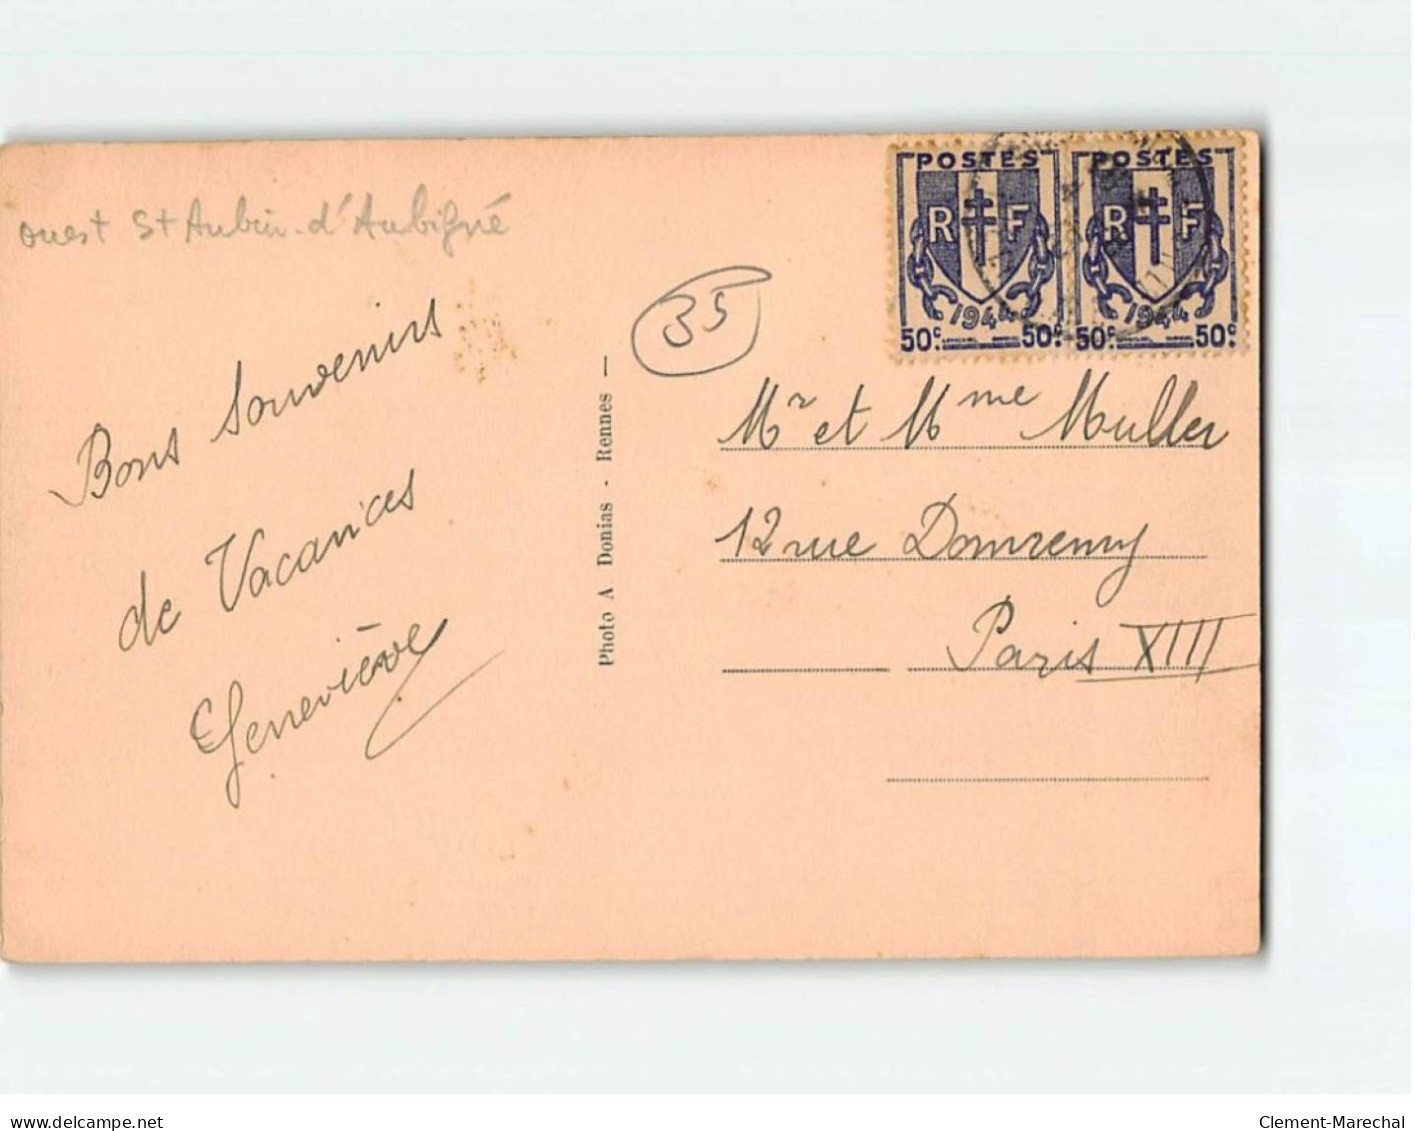 ouest St Aubin-d'Aubigné
35
Bons Souvenirs
de Vacances
Geneviève
Photo A Donias - Rennes —
POSTES
R F
1944
50c. 50c.
POSTES
R F
1944
50c. 50c.
Mr et Mme Muller
12 rue Domremy
Paris XIII
delcampe.net
Clement-Marechal